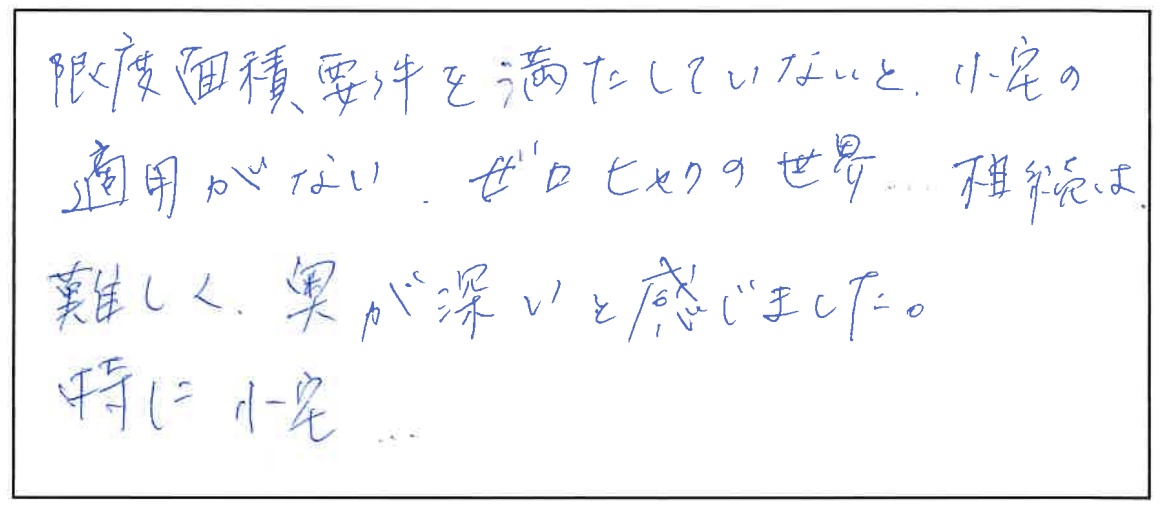 限度面積要件を満たしていないと、小宅の
適用がない、ゼロヒャクの世界… 相続は
難しく、奥が深いと感じました。
特に小宅…